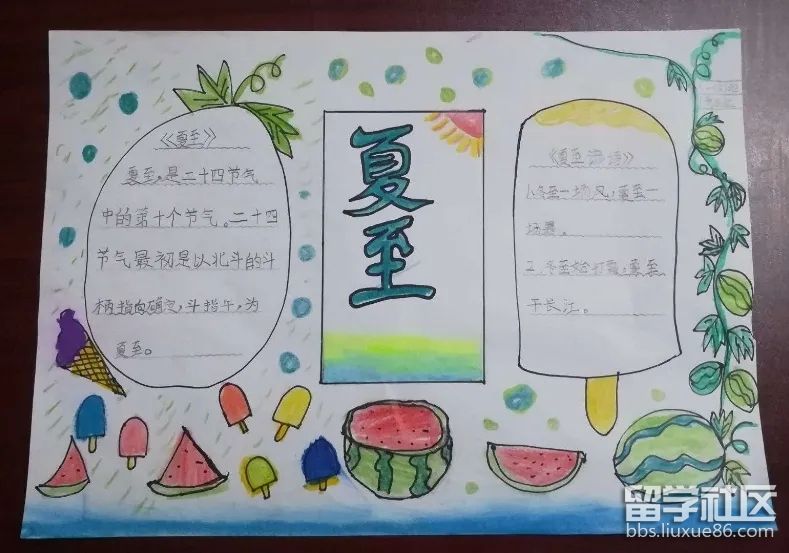 《夏至》
夏至,是二十四节气
中的第十个节气。二十四
节气最初是以北斗的斗
柄指向确定,斗指午,为
夏至。
夏至
《夏至谚语》
1.冬至一场风,夏至一
场暴。
2.冬至始打霜,夏至
干长江。
留学社区
bbs.liuxue86.com